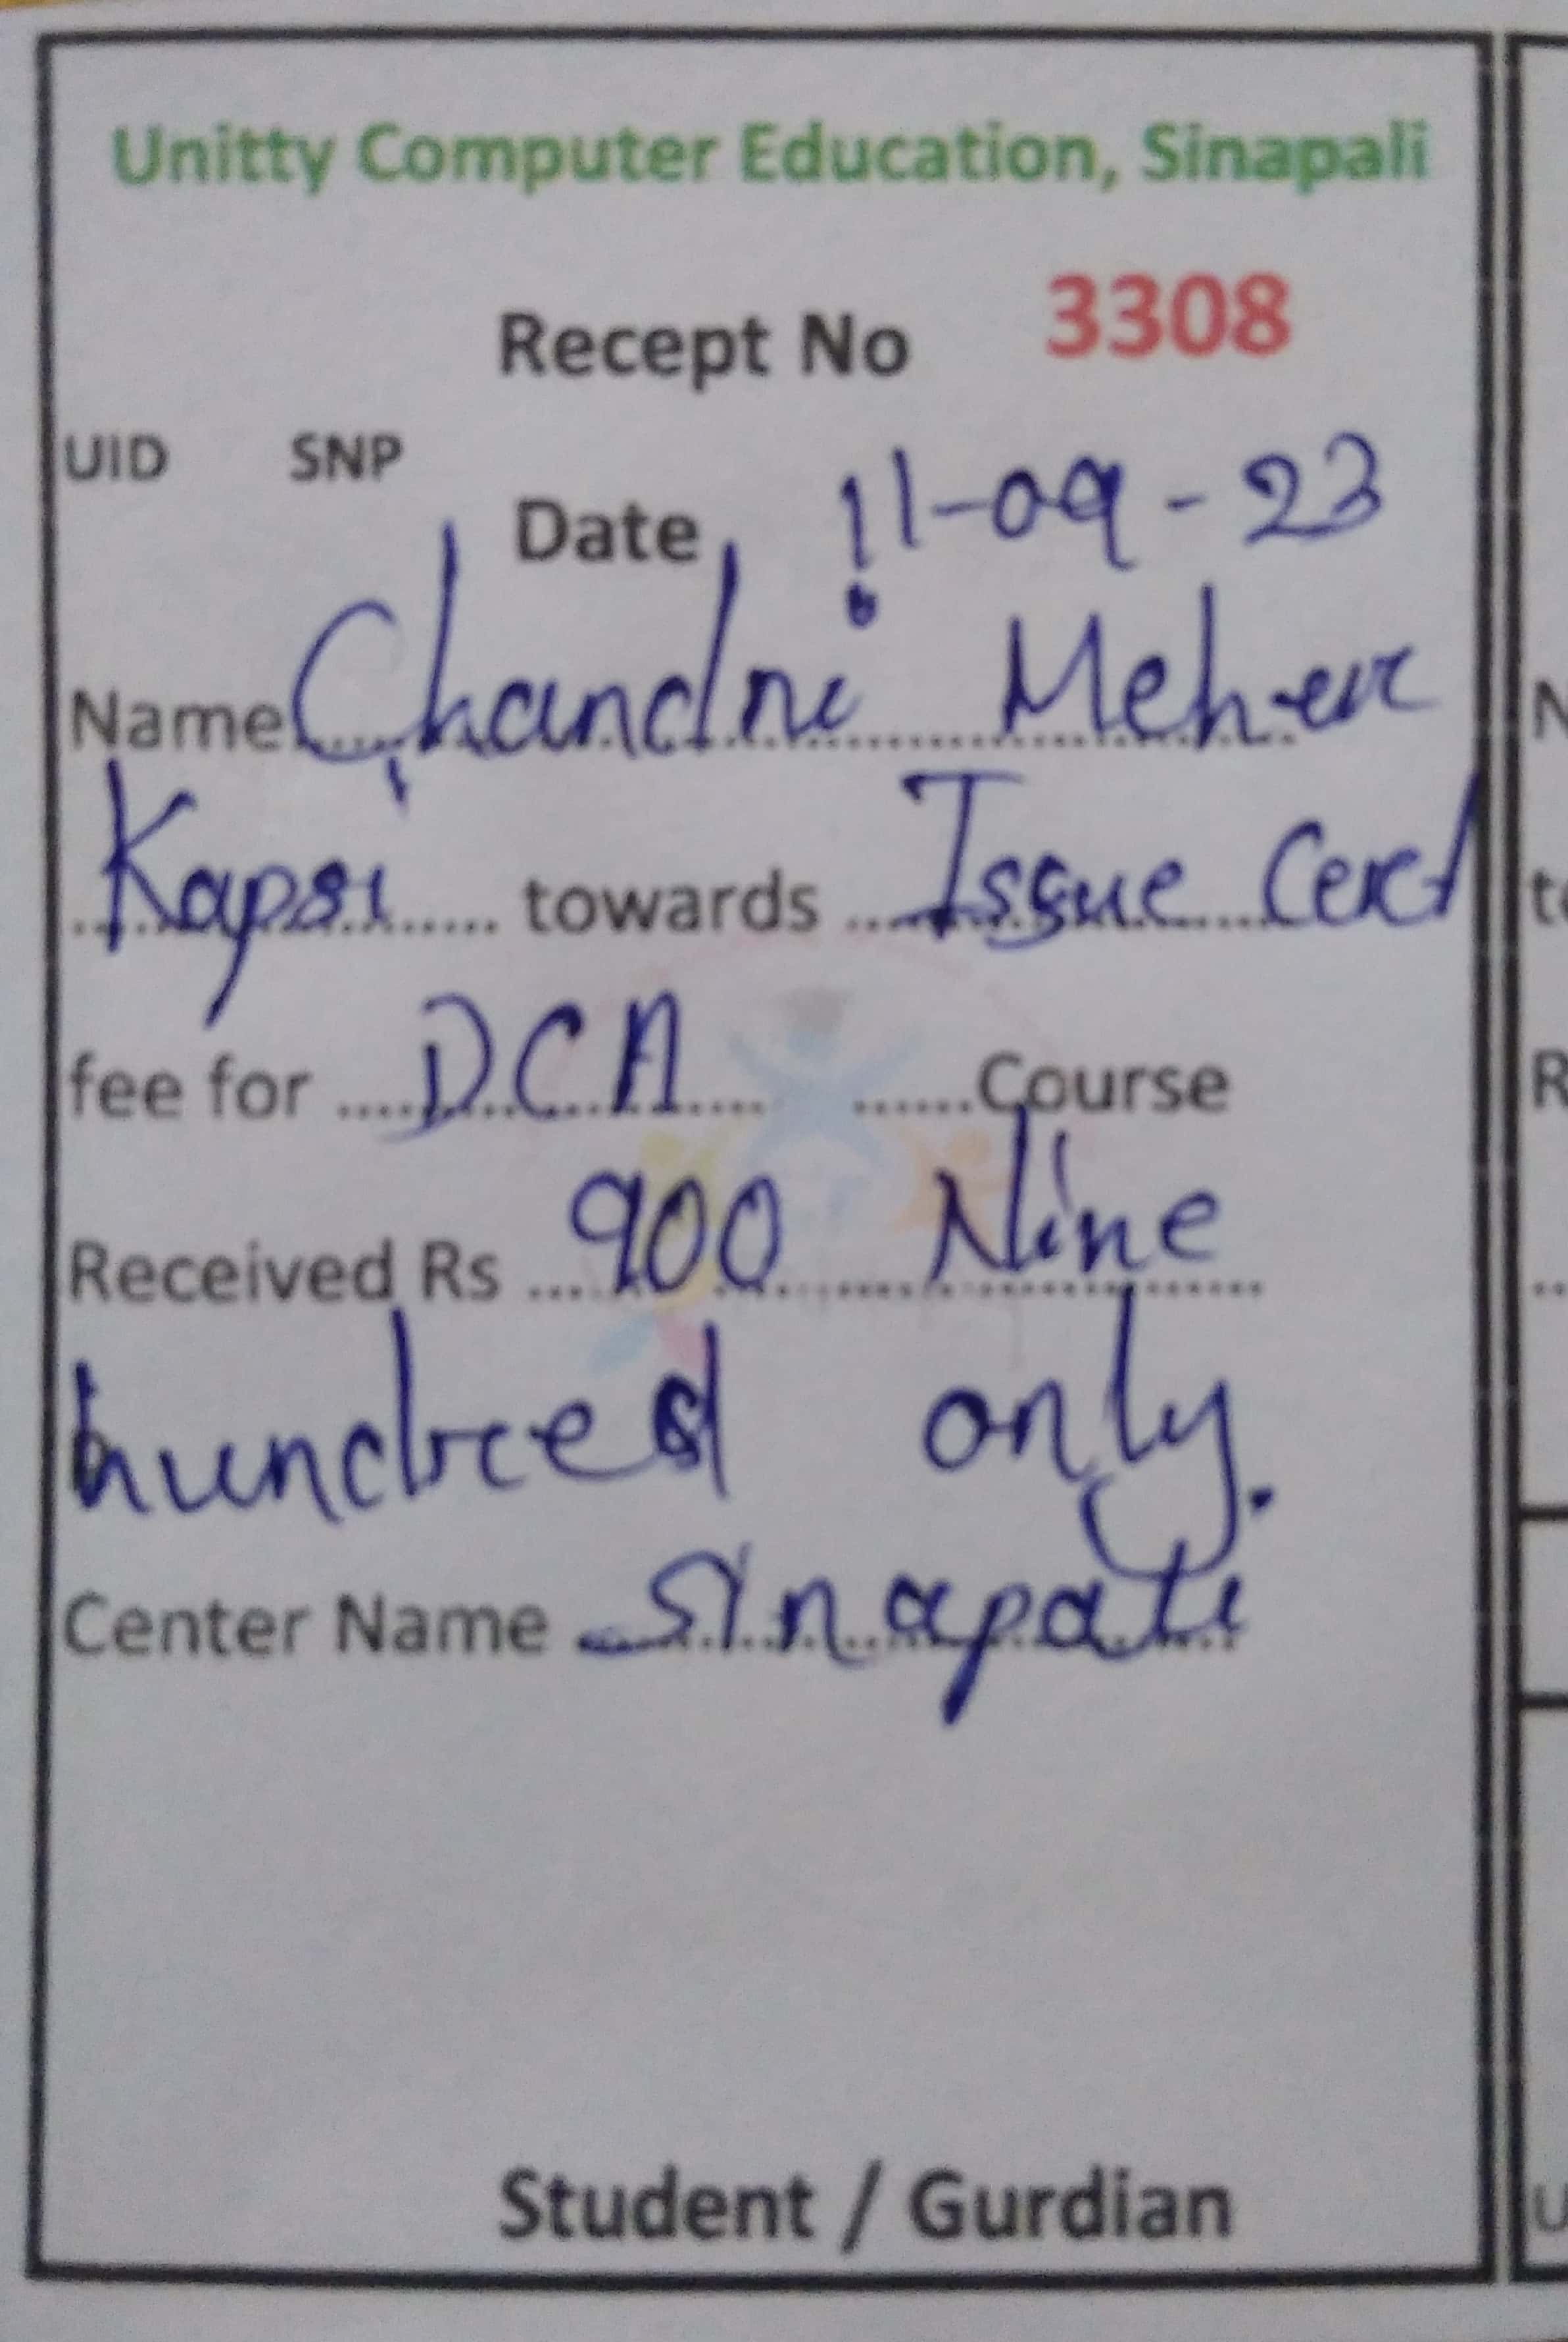 Unitty Computer Education, Sinapali
Recept No 3308
UID SNP
Date 11-09-23
Name Chandni Meher
Kapsi towards Issue Cert
fee for DCA Course
Received Rs 900 Nine
hundred only.
Center Name Sinapali
Student / Gurdian